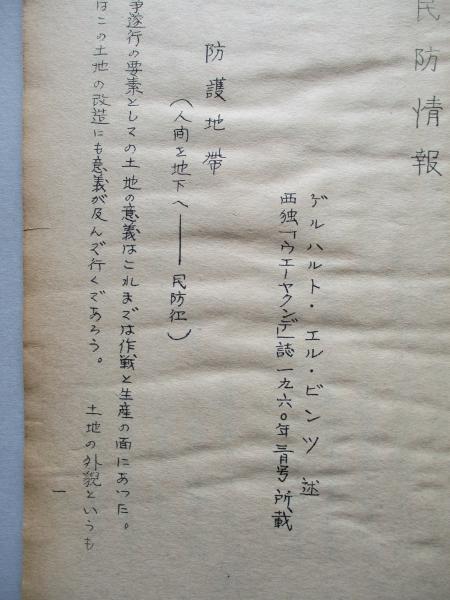 民防情報
ゲルハルト・エル・ビンツ 述
西独「ウエーヤクンデ」誌 一九六〇年三月号所載
防護地帯
(人間を地下へ――民防征)
争遂行の要素としての土地の意義はこれまでは作戦と生産の面にあつた。
はこの土地の改造にも意義が及んで行くであろう。 土地の外貌というも
一